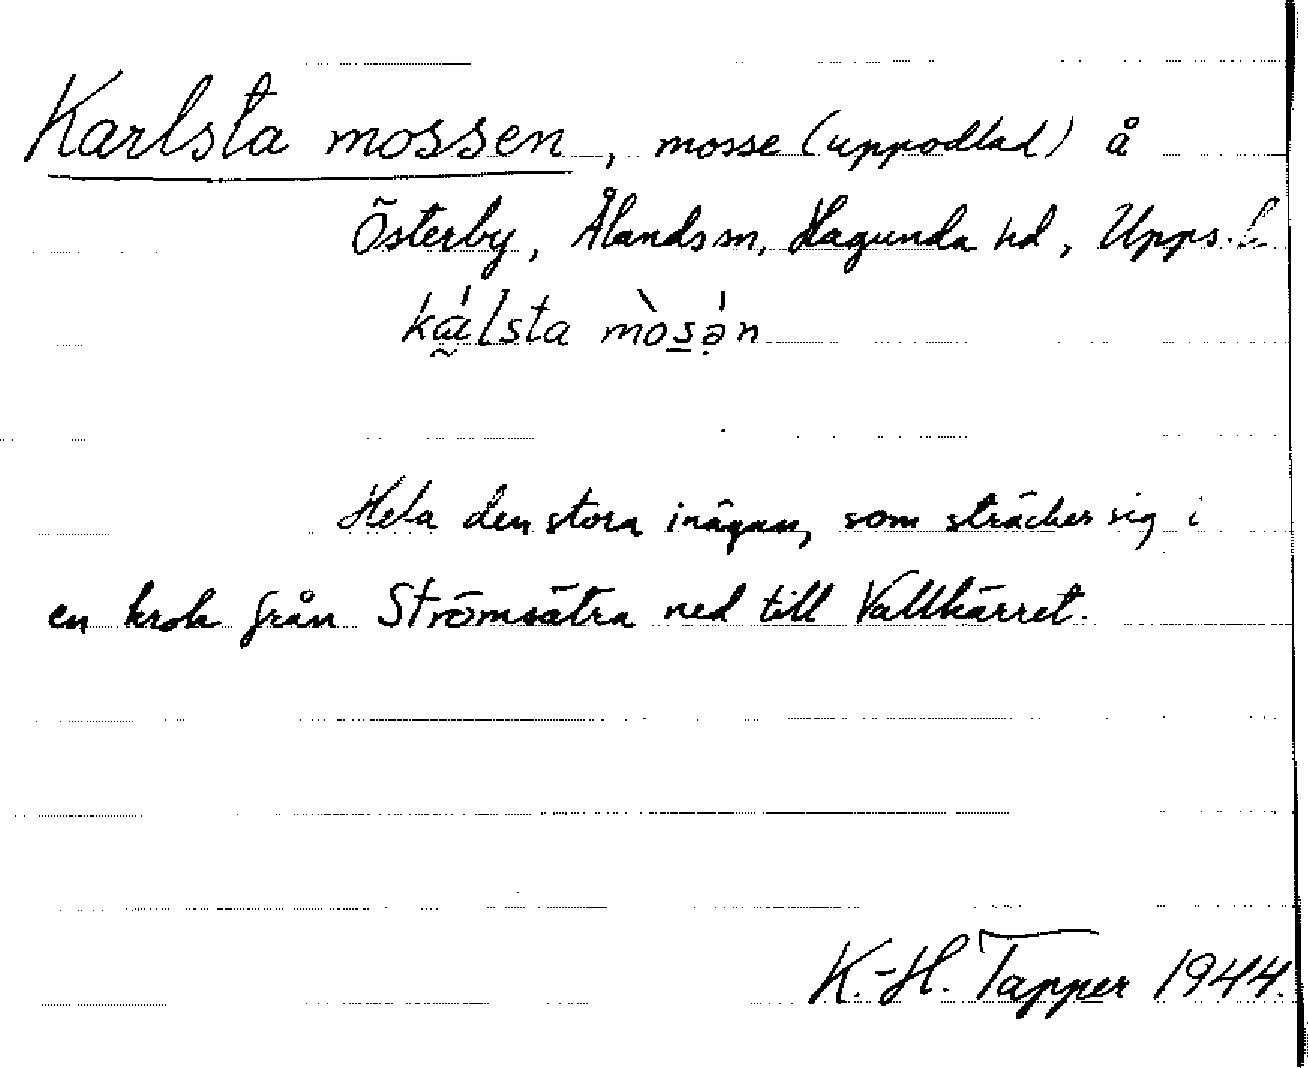 Karlsta mossen, mosse (uppodlad) å
Österby, Ålands sn, Hagunda hd, Upps. l.
Hela den stora inägan, som sträcker sig i
en krok från Strömsätra ned till Vallkärret.
K.-H. Tapper 1944.